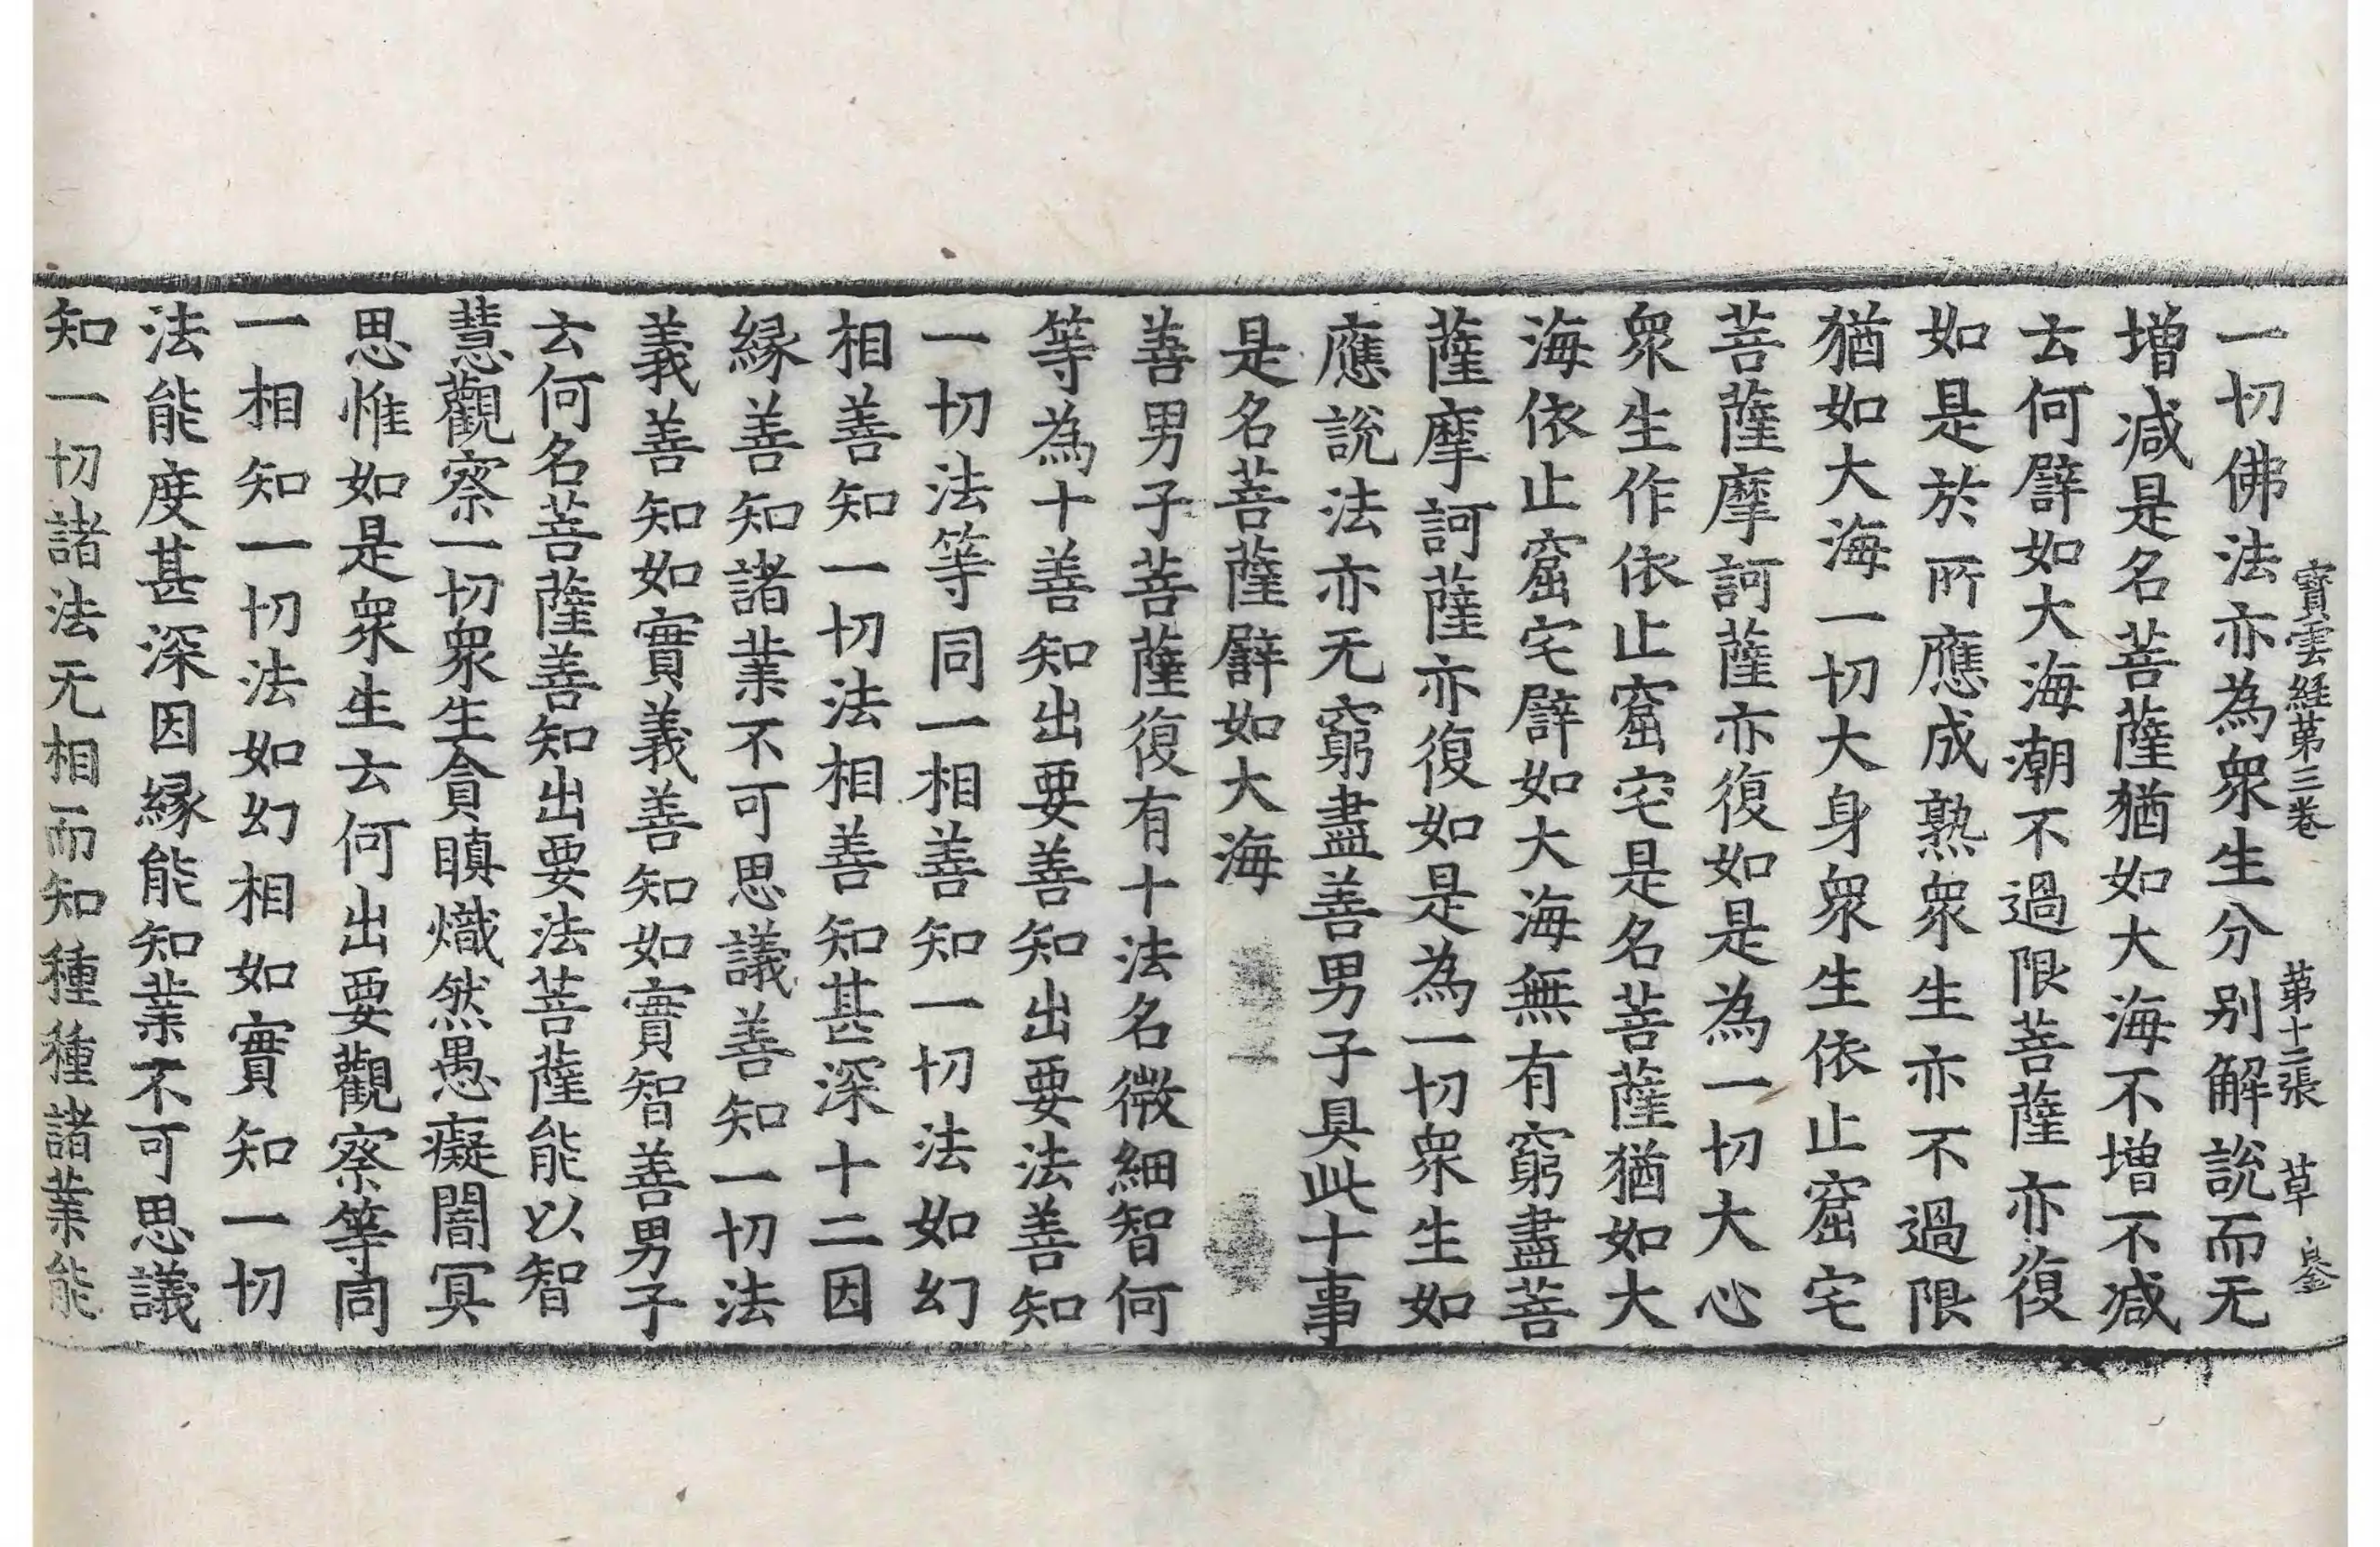 寶雲經第三卷 第十二張 草
一切佛法亦為衆生分别解說而无
增减是名菩薩猶如大海不增不减
云何譬如大海潮不過限菩薩亦復
如是於所應成熟衆生亦不過限
猶如大海一切大身衆生依止窟宅
菩薩摩訶薩亦復如是為一切大心
衆生作依止窟宅是名菩薩猶如大
海依止窟宅譬如大海無有窮盡菩
薩摩訶薩亦復如是為一切衆生如
應說法亦无窮盡善男子具此十事
是名菩薩譬如大海
善男子菩薩復有十法名微細智何
等為十善知出要善知出要法善知
一切法等同一相善知一切法如幻
相善知一切法相善知甚深十二因
緣善知諸業不可思議善知一切法
義善知如實義善知如實智善男子
云何名菩薩善知出要法菩薩能以智
慧觀察一切衆生貪瞋熾然愚癡闇冥
思惟如是衆生云何出要觀察等同
一相知一切法如幻相如實知一切
法能度甚深因緣能知業不可思議
知一切諸法无相而知種種諸業能